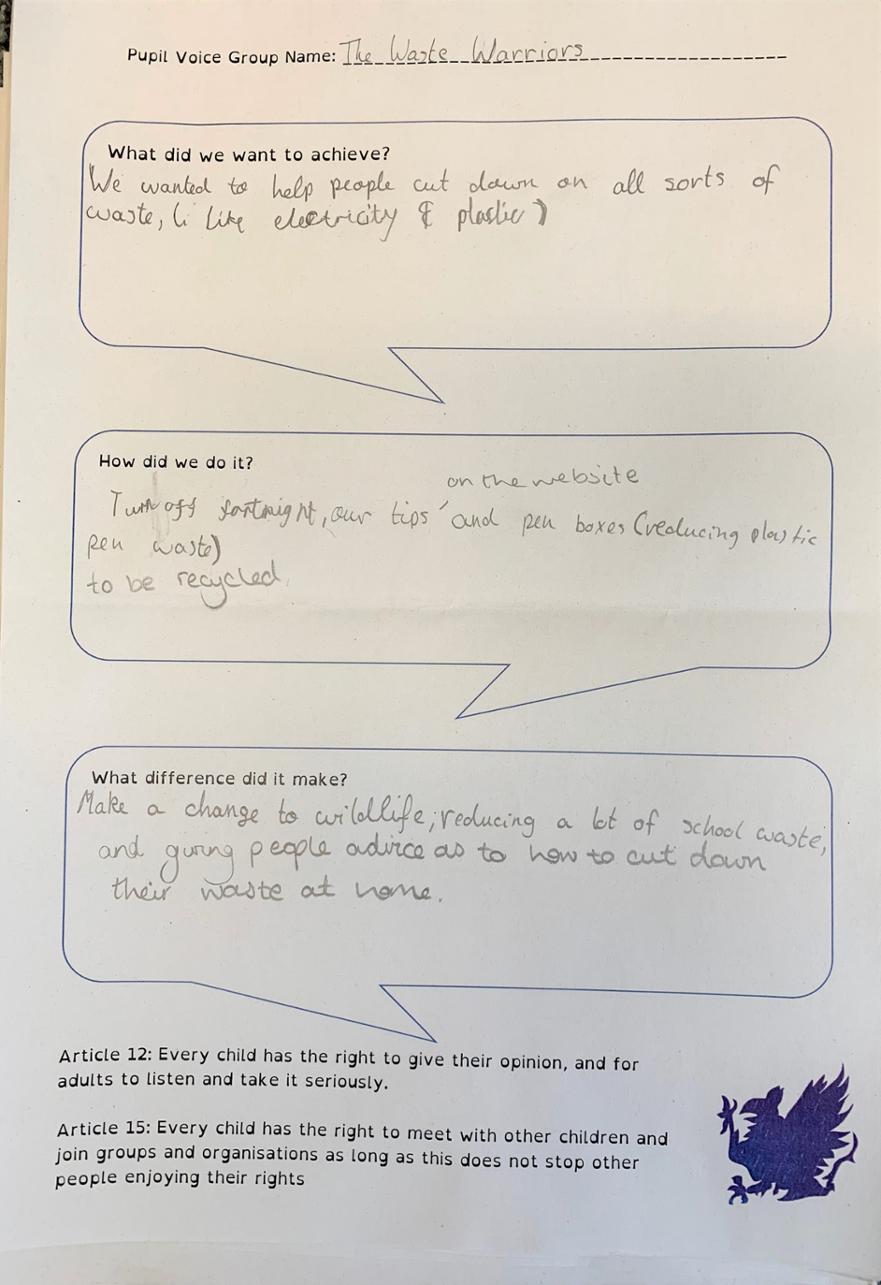 Pupil Voice Group Name: The Waste Warriors
What did we want to achieve?
We wanted to help people cut down on all sorts of
waste, (i like electricity & plastic)
How did we do it?
on the website
Turn off fortnight, our tips ′ and pen boxes (reducing plastic
pen waste)
to be recycled.
What difference did it make?
Make a change to wildlife, reducing a lot of school waste,
and giving people advice as to how to cut down
their waste at home.
Article 12: Every child has the right to give their opinion, and for
adults to listen and take it seriously.
Article 15: Every child has the right to meet with other children and
join groups and organisations as long as this does not stop other
people enjoying their rights